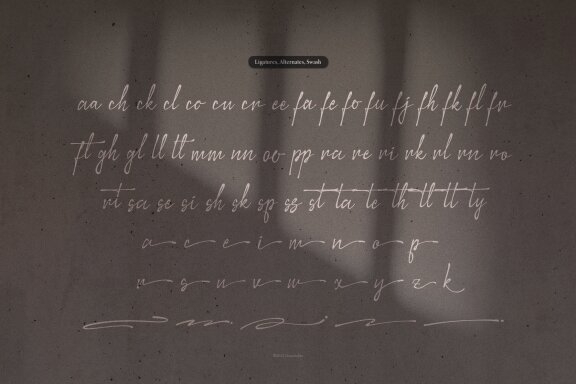 Ligatures, Alternates, Swash
aa ch ck cl co cu cr ee fa fe fo fu fj fh fk fl fr
ft gh gl ll tt mm nn oo pp ra re ri rk rl rn ro
rt sa se si sh sk sp ss st ta te th tl tt ty
a c e i m n o p
r s u v w x y z k